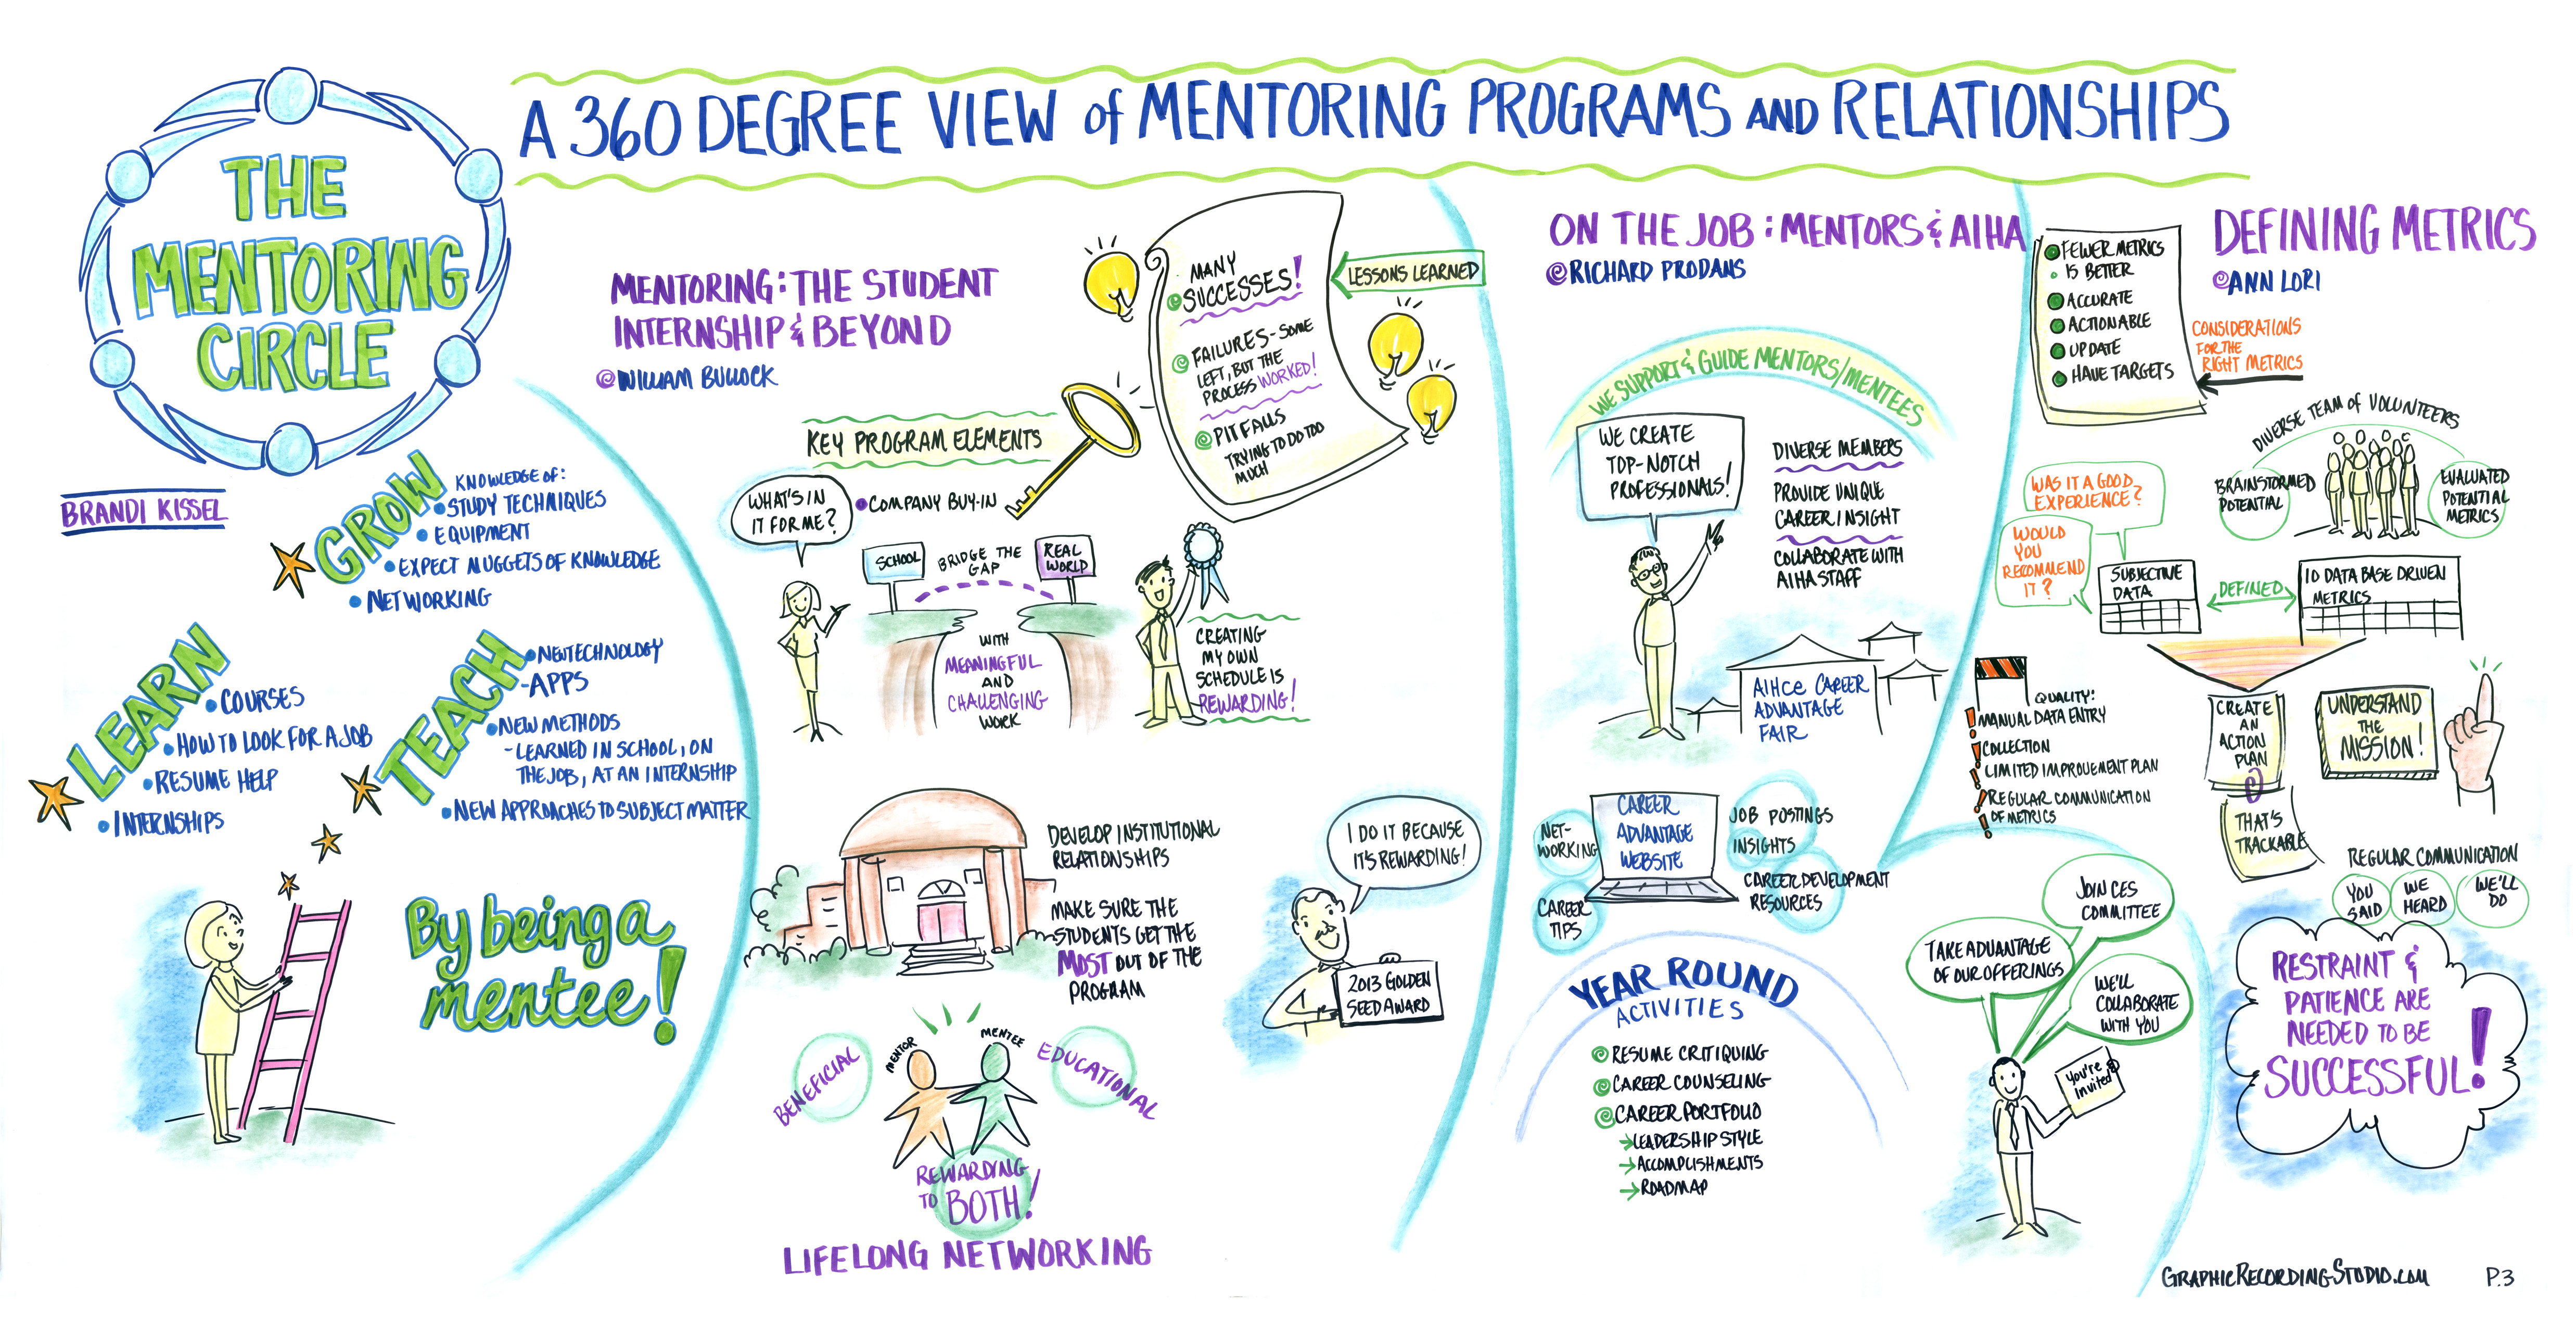 A 360 DEGREE VIEW of MENTORING PROGRAMS AND RELATIONSHIPS
THE
MENTORING
CIRCLE
BRANDI KISSEL
GROW
KNOWLEDGE OF:
• STUDY TECHNIQUES
• EQUIPMENT
• EXPECT NUGGETS OF KNOWLEDGE
• NETWORKING
LEARN
• COURSES
• HOW TO LOOK FOR A JOB
• RESUME HELP
• INTERNSHIPS
TEACH
• NEW TECHNOLOGY
- APPS
• NEW METHODS
- LEARNED IN SCHOOL, ON
THE JOB, AT AN INTERNSHIP
• NEW APPROACHES TO SUBJECT MATTER
By being a
mentee!
MENTORING: THE STUDENT
INTERNSHIP & BEYOND
WILLIAM BULLOCK
LESSONS LEARNED
MANY
SUCCESSES!
FAILURES - SOME
LEFT, BUT THE
PROCESS WORKED!
PITFALLS
TRYING TO DO TOO
MUCH
KEY PROGRAM ELEMENTS
• COMPANY BUY-IN
WHAT'S IN
IT FOR ME?
SCHOOL
BRIDGE THE
GAP
REAL
WORLD
WITH
MEANINGFUL
AND
CHALLENGING
WORK
CREATING
MY OWN
SCHEDULE IS
REWARDING!
DEVELOP INSTITUTIONAL
RELATIONSHIPS
MAKE SURE THE
STUDENTS GET THE
MOST OUT OF THE
PROGRAM
I DO IT BECAUSE
IT'S REWARDING!
2013 GOLDEN
SEED AWARD
BENEFICIAL
MENTOR
MENTEE
EDUCATIONAL
REWARDING
TO BOTH!
LIFELONG NETWORKING
ON THE JOB: MENTORS & AIHA
RICHARD PRODANS
WE SUPPORT & GUIDE MENTORS/MENTEES
WE CREATE
TOP-NOTCH
PROFESSIONALS!
DIVERSE MEMBERS
PROVIDE UNIQUE
CAREER INSIGHT
COLLABORATE WITH
AIHA STAFF
AIHce CAREER
ADVANTAGE
FAIR
CAREER
ADVANTAGE
WEBSITE
NET-
WORKING
CAREER
TIPS
JOB POSTINGS
INSIGHTS
CAREER DEVELOPMENT
RESOURCES
YEAR ROUND
ACTIVITIES
RESUME CRITIQUING
CAREER COUNSELING
CAREER PORTFOLIO
→ LEADERSHIP STYLE
→ ACCOMPLISHMENTS
→ ROADMAP
TAKE ADVANTAGE
OF OUR OFFERINGS
JOIN CES
COMMITTEE
WE'LL
COLLABORATE
WITH YOU
You're
Invited
DEFINING METRICS
ANN LORI
FEWER METRICS
IS BETTER
ACCURATE
ACTIONABLE
UPDATE
HAVE TARGETS
CONSIDERATIONS
FOR THE
RIGHT METRICS
DIVERSE TEAM of VOLUNTEERS
BRAINSTORMED
POTENTIAL
EVALUATED
POTENTIAL
METRICS
WAS IT A GOOD
EXPERIENCE?
WOULD
YOU
RECOMMEND
IT?
SUBJECTIVE
DATA
DEFINED
10 DATA BASE DRIVEN
METRICS
QUALITY:
! MANUAL DATA ENTRY
! COLLECTION
! LIMITED IMPROVEMENT PLAN
! REGULAR COMMUNICATION
OF METRICS
CREATE
AN
ACTION
PLAN
THAT'S
TRACKABLE
UNDERSTAND
THE
MISSION!
REGULAR COMMUNICATION
YOU
SAID
WE
HEARD
WE'LL
DO
RESTRAINT &
PATIENCE ARE
NEEDED TO BE
SUCCESSFUL!
GRAPHICRECORDINGSTUDIO.COM
P.3